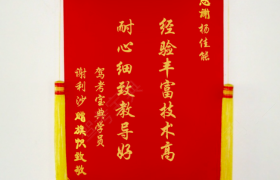 感谢杨佳能
经验丰富技术高
耐心细致教导好
驾考宝典学员
谢利沙赠旗致敬